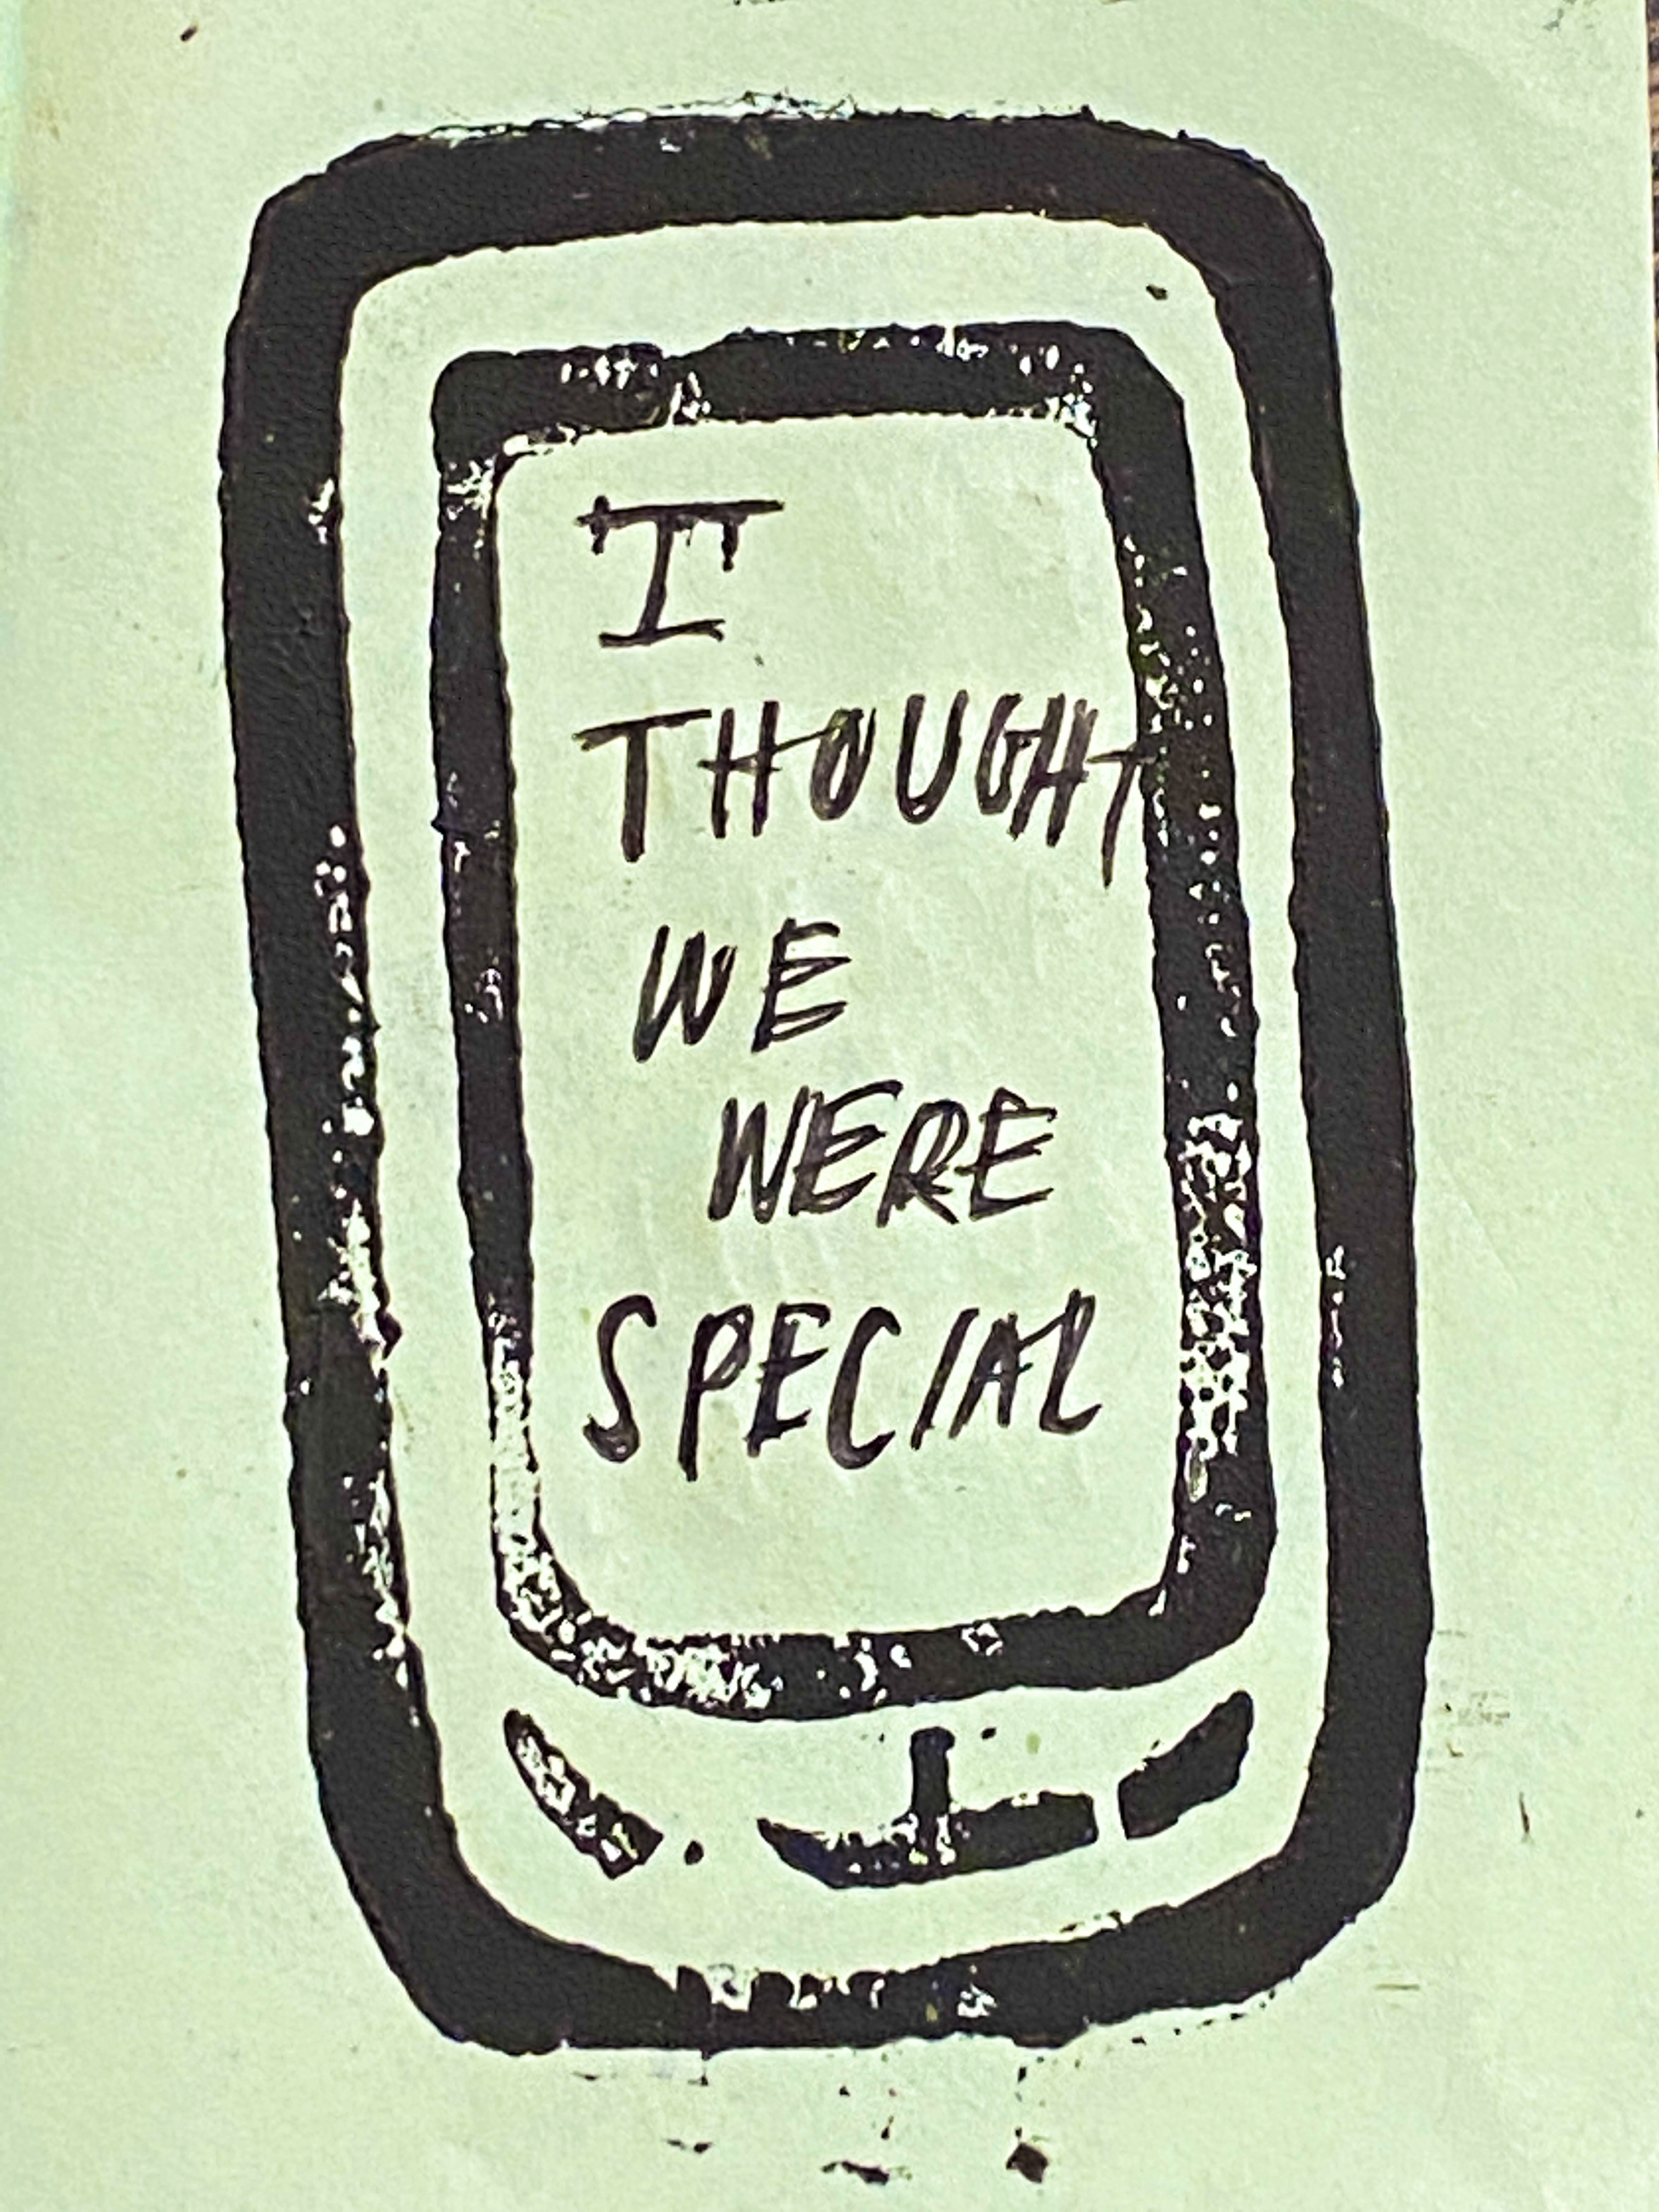 I
THOUGHT
WE
WERE
SPECIAL